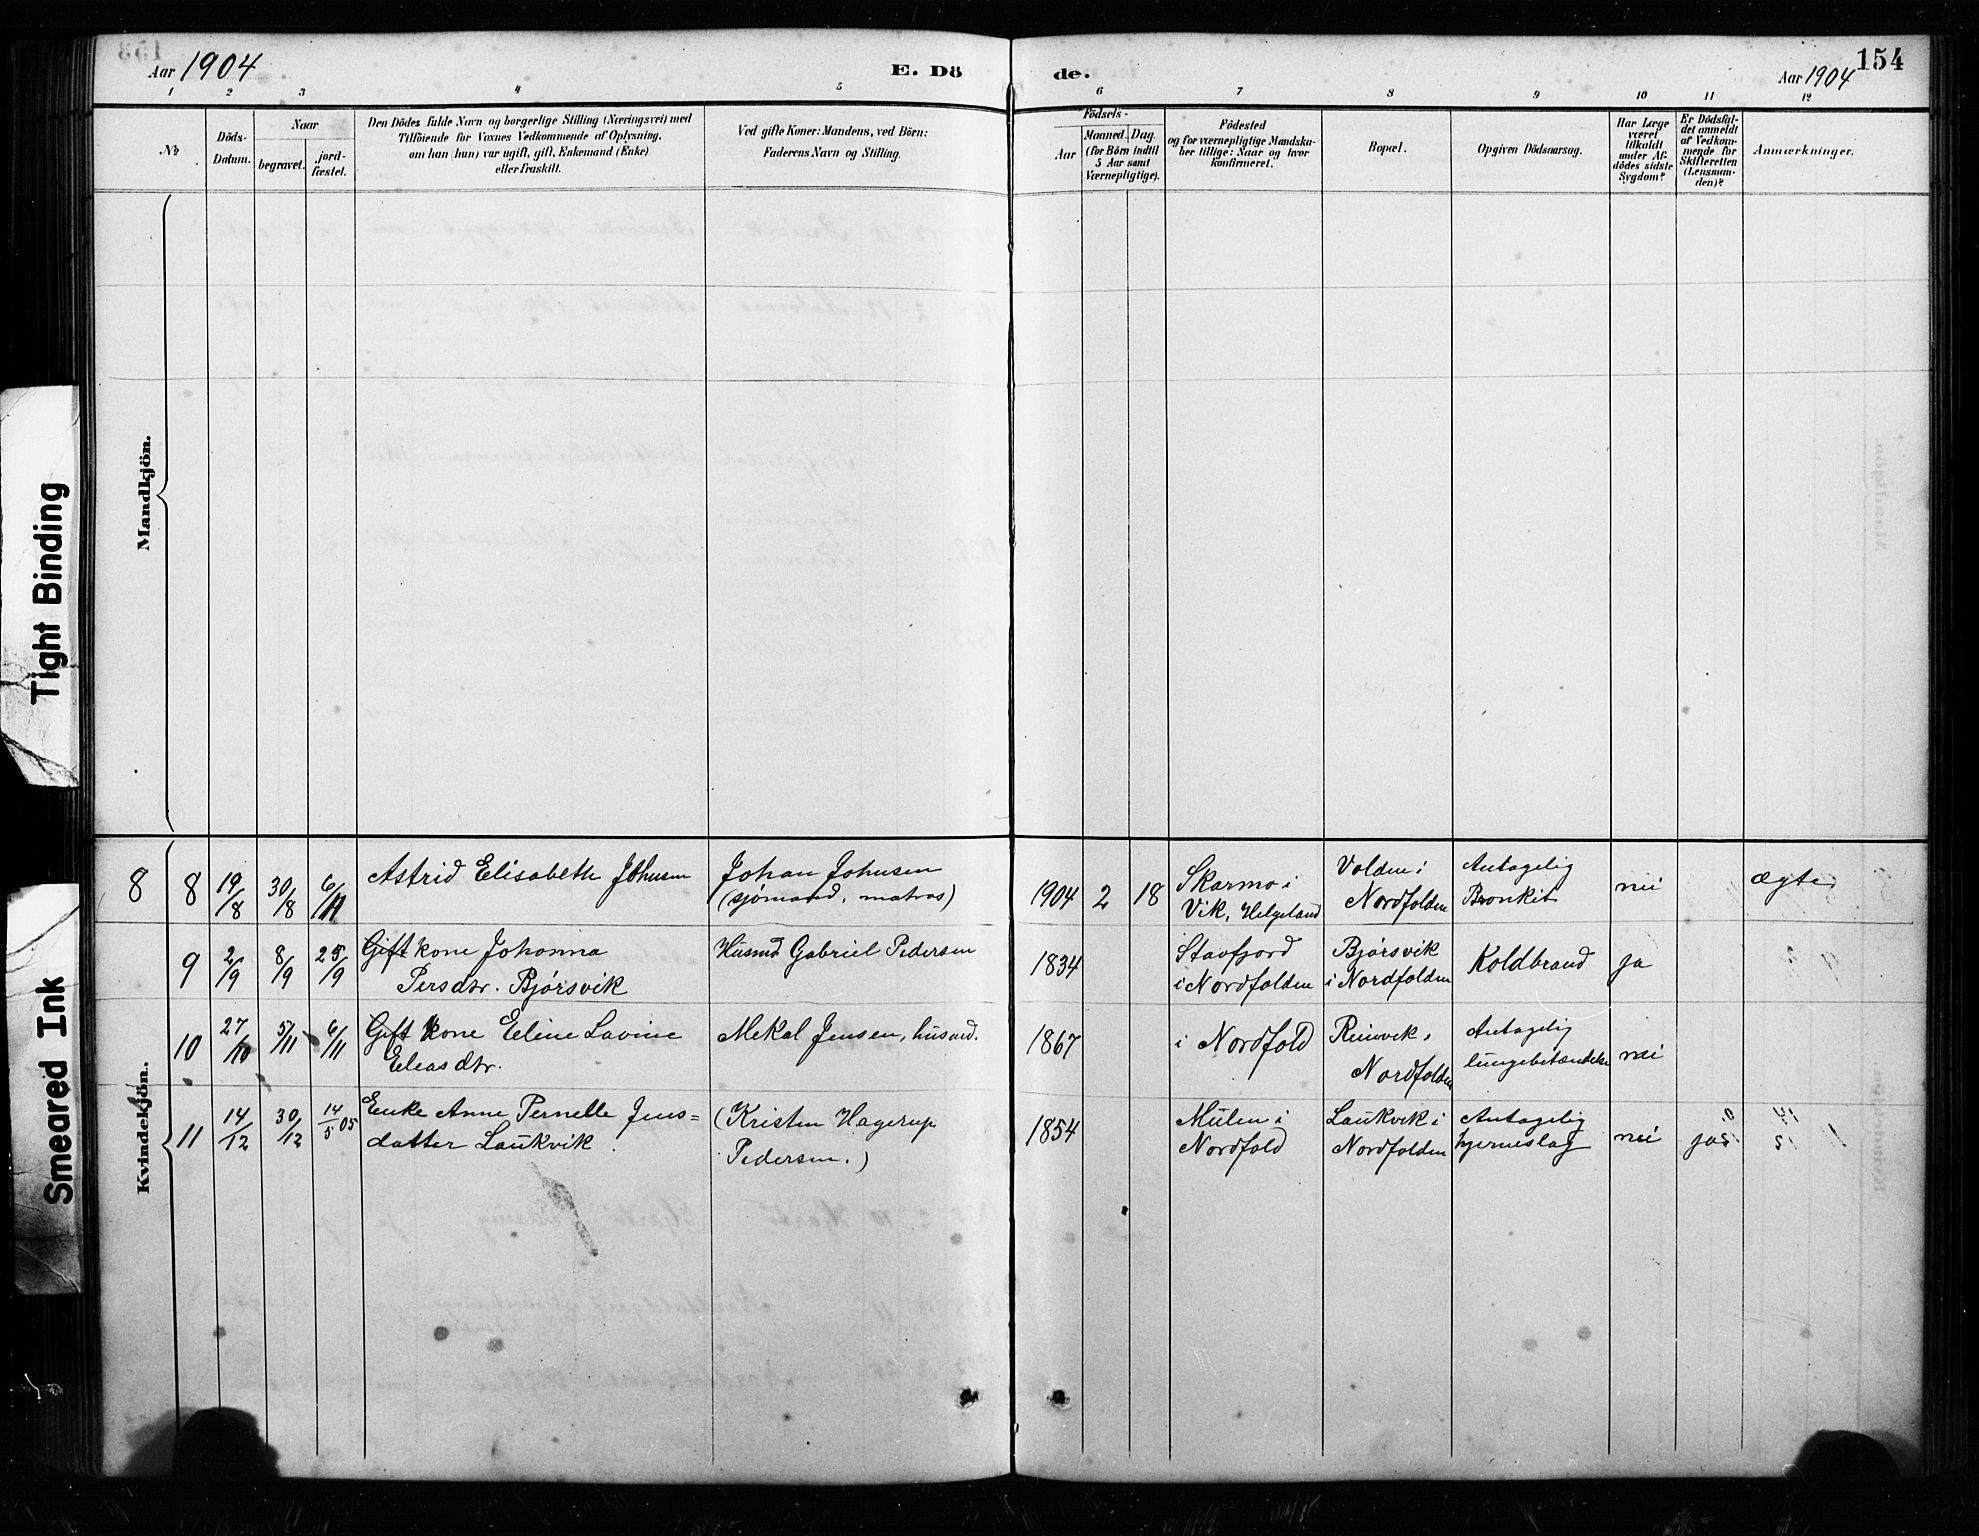 Aar 1904
E. Dö
de.
Aar 1904
154
1 2 3 4 5 6 7 8 9 10 11 12
№
Döds-
Datum.
Naar
begravet.
jord-
fæstet.
Den Dödes fulde Navn og borgerlige Stilling (Næringsvei) med
Tilföiende for Voxnes Vedkommende af Oplysning,
om han (hun) var ugift, gift, Enkemand (Enke)
eller fraskilt.
Ved gifte Koner: Mandens, ved Börn:
Faderens Navn og Stilling.
Födsels-
Aar
Maaned.
Dag.
(for Börn indtil
5 Aar samt
Værnepligtige).
Födested
og for værnepligtige Mandska-
ber tillige: Naar og hvor
konfirmeret.
Bopæl.
Opgiven Dödsaarsag.
Har Læge
været
tilkaldt
under Af-
dödes sidste
Sygdom?
Er Dödsfal-
det anmeldt
af Vedkom-
mende for
Skifteretten
(Lensman-
den)?
Anmærkninger.
Mandkjön.
Tight Binding
Smeared Ink
Kvindekjön.
8 8 19/8 30/8 6/11 Astrid Elisabeth Johnsen Johan Johnsen 1904 2 18 Skarmo i Volden i Antagelig nei ægte
(sjømand, matros) Vik, Helgeland Nordfolden Bronkit
9 2/9 8/9 25/9 Gift kone Johanna Husmd Gabriel Pedersen 1834 Stavfjord Bjørsvik Koldbrand ja
Persdtr. Bjørsvik i Nordfolden i Nordfolden
10 27/10 5/11 6/11 Gift kone Eline Lovine Mekal Jensen, husmd. 1867 i Nordfold Reinvik i Antagelig nei
Eleasdtr. Nordfolden lungebetændelse
11 14/12 30/12 14/5 05 Enke Anne Pernelle Jens= (Kristen Hagerup 1854 Mulen i Laukvik i Antagelig nei ja
datter Laukvik. Pedersen.) Nordfold Nordfolden hjerneslag